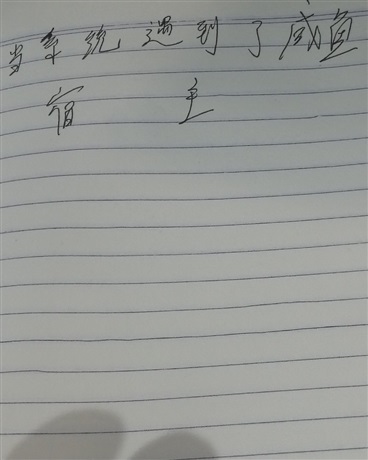 当系统遇到了咸鱼
宿主